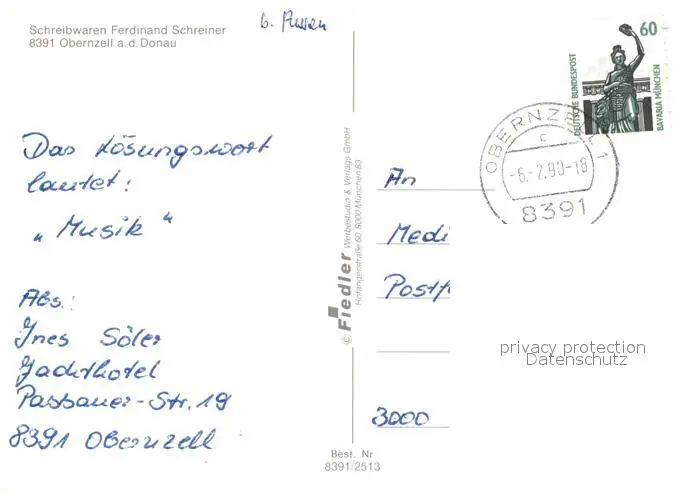 Schreibwaren Ferdinand Schreiner
8391 Obernzell a.d. Donau
Das Lösungswort
lautet:
„Musik"
Abs.:
Ines Söler
Jachthotel
Passauer-Str. 19
8391 Obernzell
© Fiedler Werbestudio & Verlags GmbH
Hofangerstraße 60, 8000 München 83
Best. Nr
8391/2513
60
DEUTSCHE BUNDESPOST
BAVARIA MÜNCHEN
OBERNZELL 1
c
-6.-2.90-18
8391
An
Medi
Postf
3000
privacy protection
Datenschutz